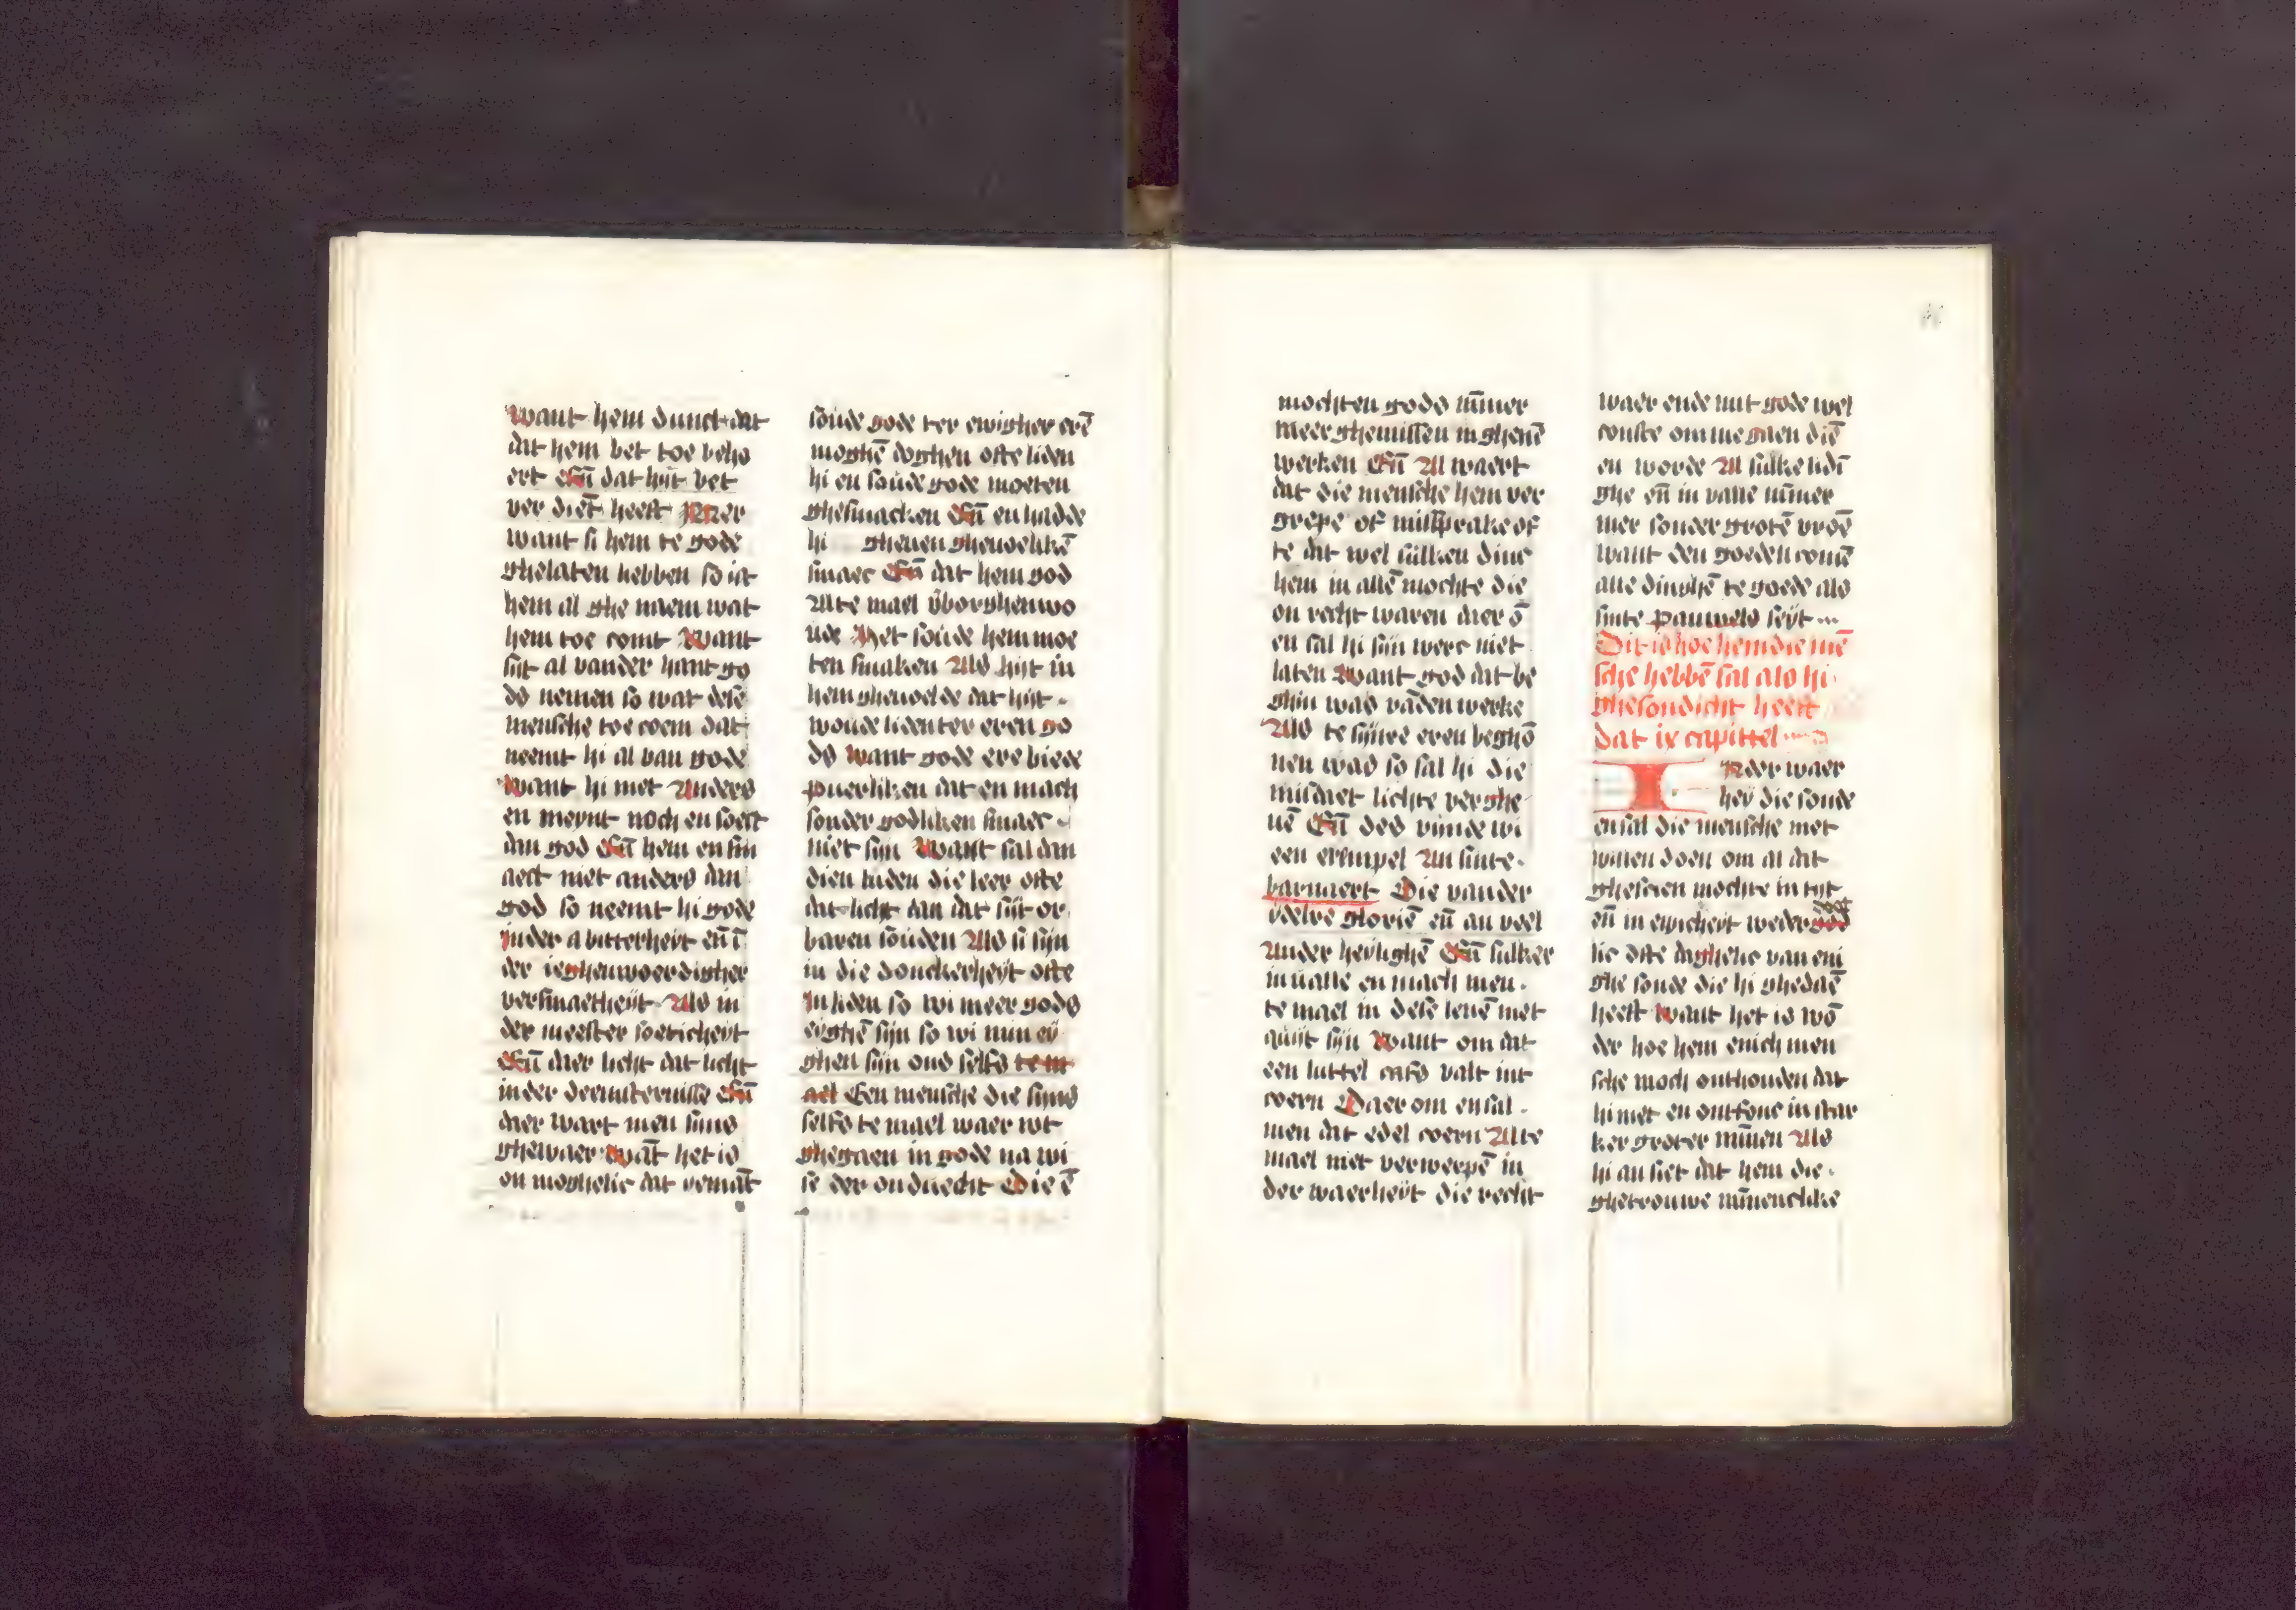 want hem dunct dat
dat hem bet toe beho
ert Eñ dat hijt bet
ver diēt heeft Mer
want si hem te gode
ghelaten hebben so ist
hem al ghe naem wat
hem toe comt Want
sijt al vander hant go
ds nemen so wat dese
mensche toe coem dat
neemt hi al van gode
Want hi niet Anders
en meynt noch en soect
dan god Eñ hem en sm
aect niet anders dan
god so neemt hi gode
in der a bitterheyt eñ ī
der ieghenwoerdigher
versmaetheijt Als in
der meester soeticheyt
Eñ daer licht dat licht
in der deemsternisse Eñ
daer wart men sijns
ghewaer Wāt het is
on moghelic dat yemāt
soude gode ter ewigher erē
moghē doghen ofte liden
hi en soude gode moeten
ghesmacken Eñ en hadde
hi gheuen gheuoelikē
smaec Eñ dat hem god
Alte mael v̄borghen wo
ude Het soude hem moe
ten smaken Als hijt in
hem gheuoelde dat hijt
woude liden ter eren go
ds want gode ere biede
puerliken dat en mach
sonder godliken smaec
niet sijn Want sal dan
dien luden die leer ofte
dat licht dan dat sijt or
baren souden Als si sijn
in die donckerheyt ofte
In liden so wi meer gods
eyghē sijn so wi min ey
ghen sijn ons selfs te m
ael Een mensche die sijns
selfs te mael waer wt
ghegaen in gode na wi
se der onduecht Die ē
mochten gods nūmer
meer ghemissen in ghenē
werken Eñ Al waert
dat die mensche hem ver
grepe of missprake of
te dat wel sulken dinc
hem in allē mochte die
on recht waren daer ō
en sal hi sijn werc niet
laten Want god dat be
ghin was vāden werke
Als te sijnre eren beghō
nen was so sal hi die
misdaet lichte verghe
uē Eñ des vijnde wi
een exempel An sinte
barnaert Die vander
ydelre gloriē eñ an veel
Ander heylighē Eñ sulker
in ualle en mach men
te mael in dese leuē niet
quijt sijn Want om dat
een luttel cafs valt int
coern Daer om en sal
men dat edel coern Alte
mael niet verwerpē in
der waerheyt die recht
waer ende mit gode wel
conste omme gaen diē
en worde Al sulke lidī
ghe eñ in valle nūmer
mer sonder grotē vroē
want den goeden comē
alle dinghē te goede als
sinte pauwels seyt
Dit is hoe hem die mē
sche hebbē sal als hi
ghesondicht heeft
dat ix capittel
I Nder waer
heÿ die sonde
en sal die mensche niet
willen doen om al dat
ghescien mochte in tijt
eñ in ewicheyt weder doot
lic ofte daghelic van eni
ghe sonde die hi ghedaē
heeft Want het is wō
der hoe hem enich men
sche moch onthouden dat
hi niet en ontfonc in star
ker groter mīnen Als
hi an siet dat hem die
ghetrouwe mīnenclike